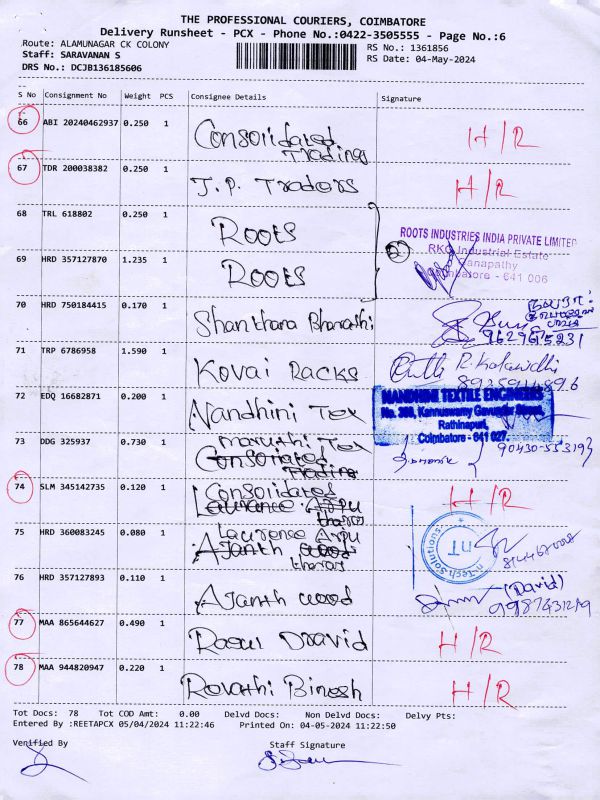 THE PROFESSIONAL COURIERS, COIMBATORE
Delivery Runsheet - PCX - Phone No.:0422-3505555 - Page No.:6
Route: ALAMUNAGAR CK COLONY RS No.: 1361856
Staff: SARAVANAN S RS Date: 04-May-2024
DRS No.: DCJB136185606
S No Consignment No Weight PCS Consignee Details Signature
66 ABI 20240462937 0.250 1 Consolidated Trading H/R
67 TDR 200038382 0.250 1 J.P. Traders H/R
68 TRL 618802 0.250 1 Roots
ROOTS INDUSTRIES INDIA PRIVATE LIMITED
RKG Industrial Estate
Ganapathy
Coimbatore - 641 006
69 HRD 357127870 1.235 1 Roots
70 HRD 750184415 0.170 1 Shankhara Bharathi
9629675231
71 TRP 6786958 1.590 1 Kovai Racks
72 EDQ 16682871 0.200 1 Nandhini Tex
NANDHINI TEXTILE ENGINEERS
No. 386, Kannuswamy Gavundar Street,
Rathinapuri,
Coimbatore - 641 027.
73 DDG 325937 0.730 1 Maruthi Tex
Consoriated
Trading
74 SLM 345142735 0.120 1 Consolidated H/R
Laurance
75 HRD 360083245 0.080 1 Laurence
Ajanth
n-Tech solutions
nT
76 HRD 357127893 0.110 1 Ajanth wood (David)
77 MAA 865644627 0.490 1 Dravid H/R
78 MAA 944820947 0.220 1 Binesh H/R
Tot Docs: 78 Tot COD Amt: 0.00 Delvd Docs: Non Delvd Docs: Delvy Pts:
Entered By :REETAPCX 05/04/2024 11:22:46 Printed On: 04-05-2024 11:22:50
Verified By Staff Signature